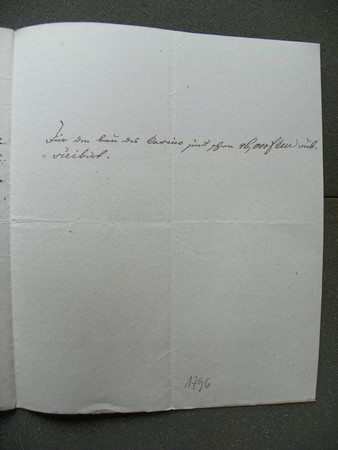 Für den bau des Casino sind schon 16,000 flm sub-
scribirt.
1796